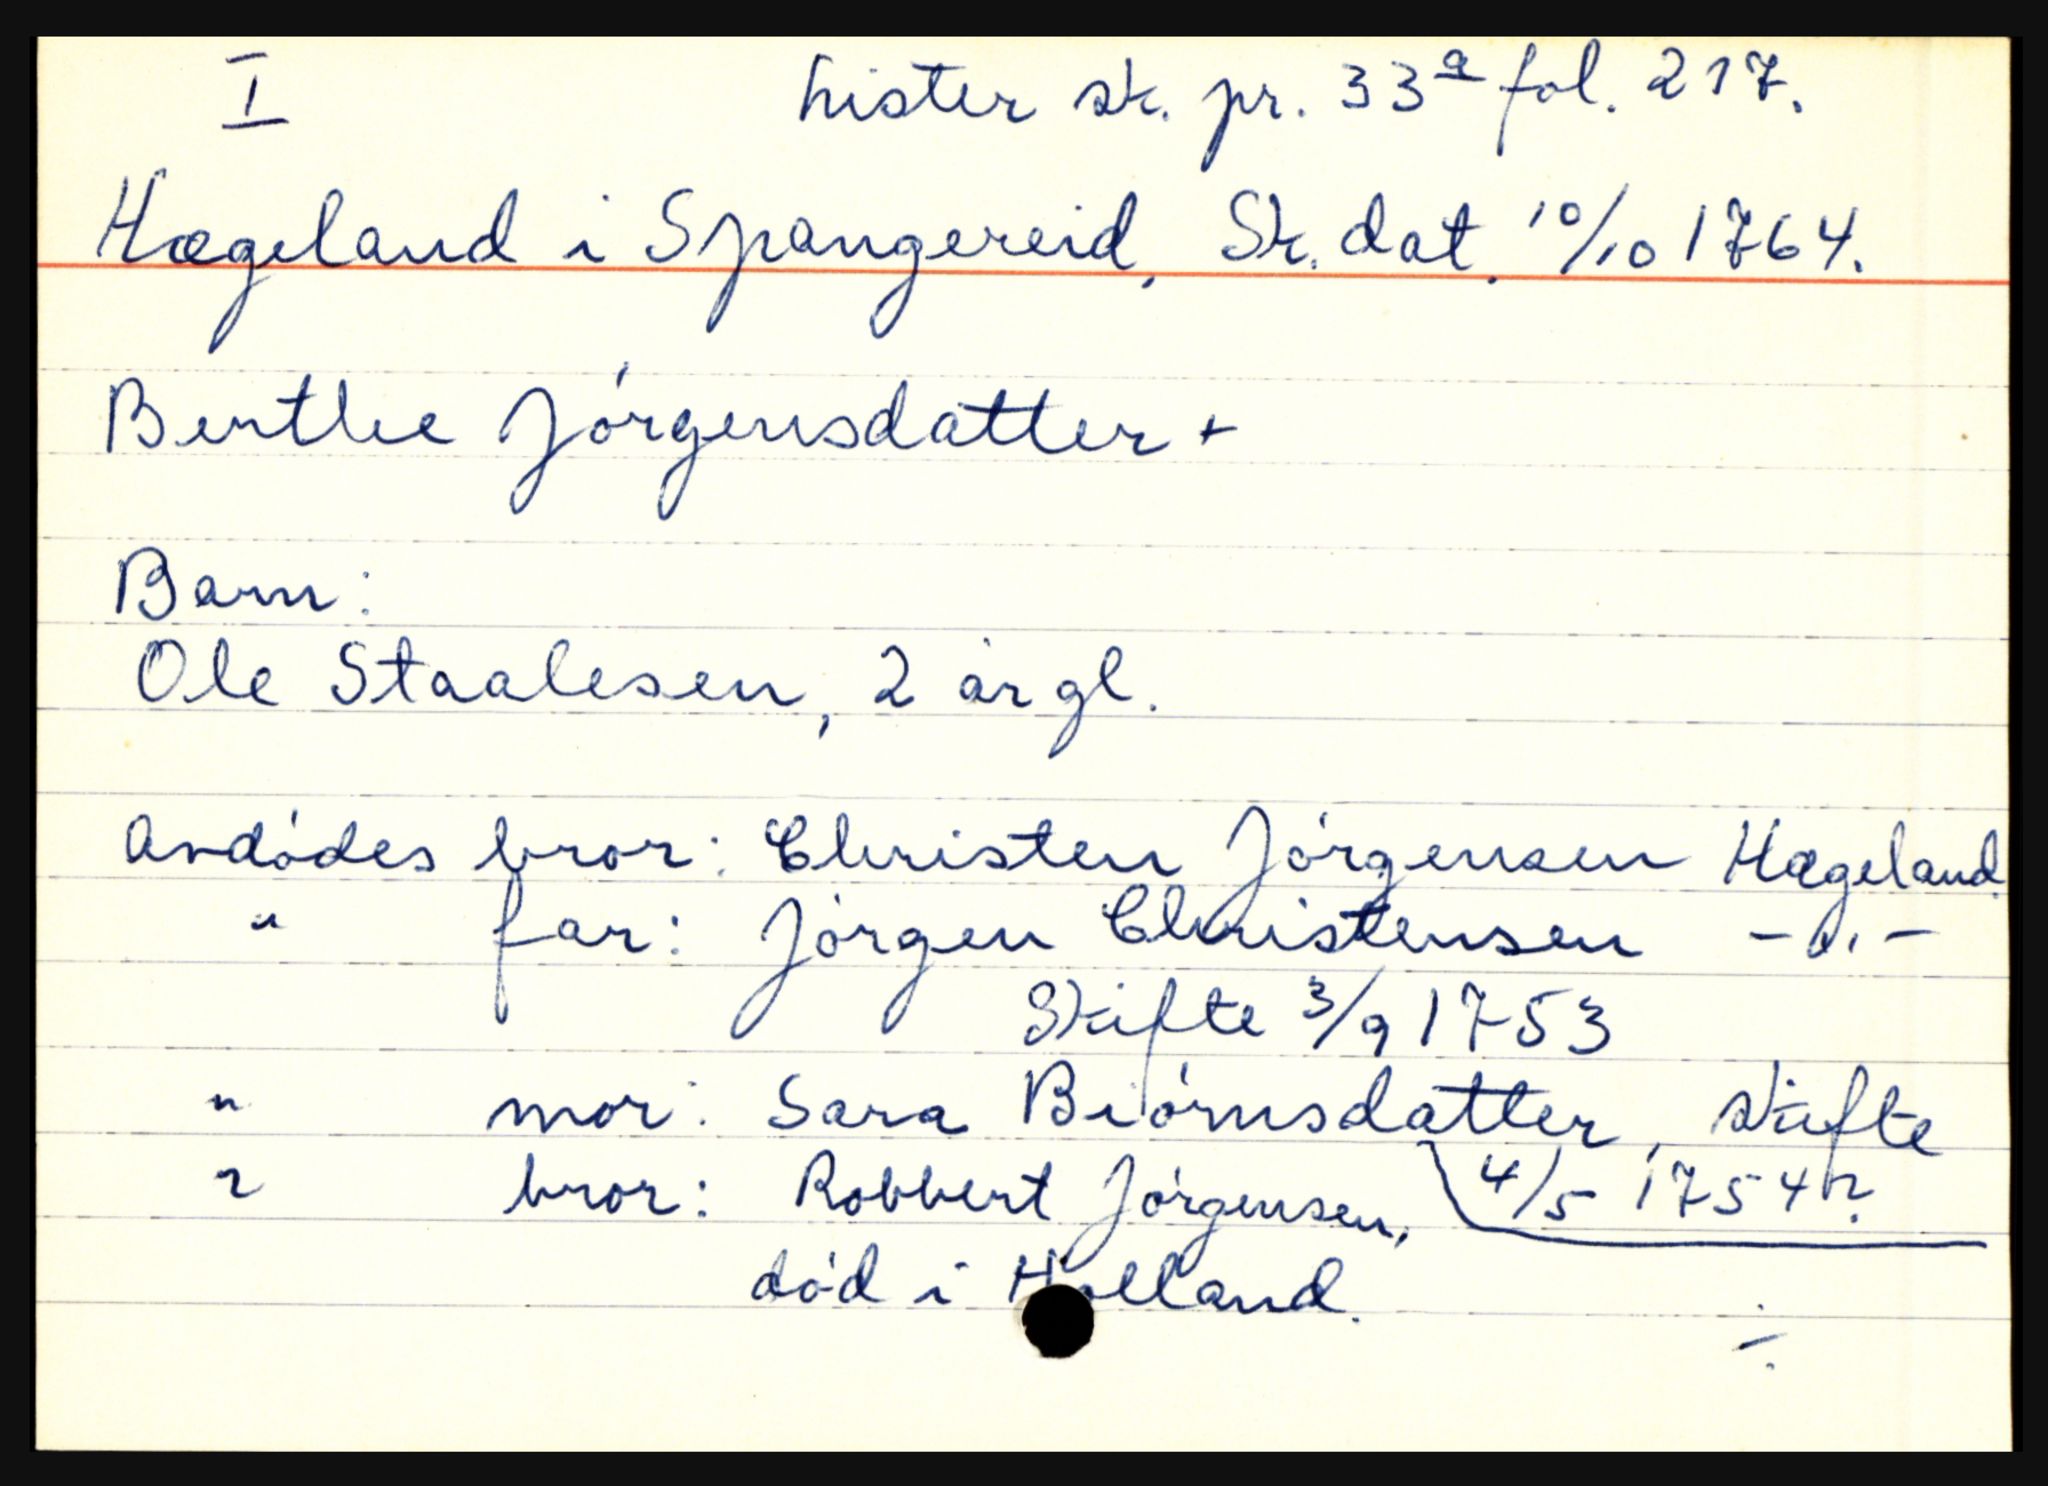 I Lister sk. pr. 33a fol. 217.
Hægeland i Spangereid, Sk. dat. 10/10 1764.
Berthe Jórgensdatter +
Barn:
Ole Staalesen, 2 år gl.
Avdódes bror: Christen Jórgensen Hægeland
" far: Jórgen Christensen - " -
Skifte 3/9 1753
" mor: Sara Biórnsdatter, skifte
4/5 1754
" bror: Robbert Jórgensen,
dód i Holland.